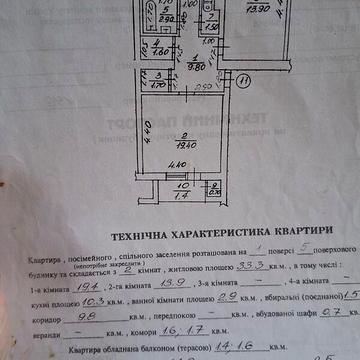 5
2.90
7
1.50
13.90
4
1.60
1
9.80
3
1.70
11
2
19.40
4.40
4.40
10
1.4
ТЕХНІЧНА ХАРАКТЕРИСТИКА КВАРТИРИ
Квартира, посімейного, спільного заселення розташована на 1 поверсі 5 поверхового
(непотрібне закреслити)
будинку та складається з 2 кімнат, житловою площею 33.3 кв.м., в тому числі:
1-а кімната 19.4, 2-а кімната 13.9, 3-я кімната –, 4-а кімната –
кухні площею 10.3 кв.м., ванної кімнати площею 2.9 кв.м., вбиральні (поєднаної) 1.5
коридор 9.8 кв.м., передпокою – кв.м., вбудованої шафи 0.7 кв.
веранди – кв.м., комори 1.6; 1.7 кв.м.
Квартира обладнана балконом (терасою) 1.4; 1.6 кв.м.